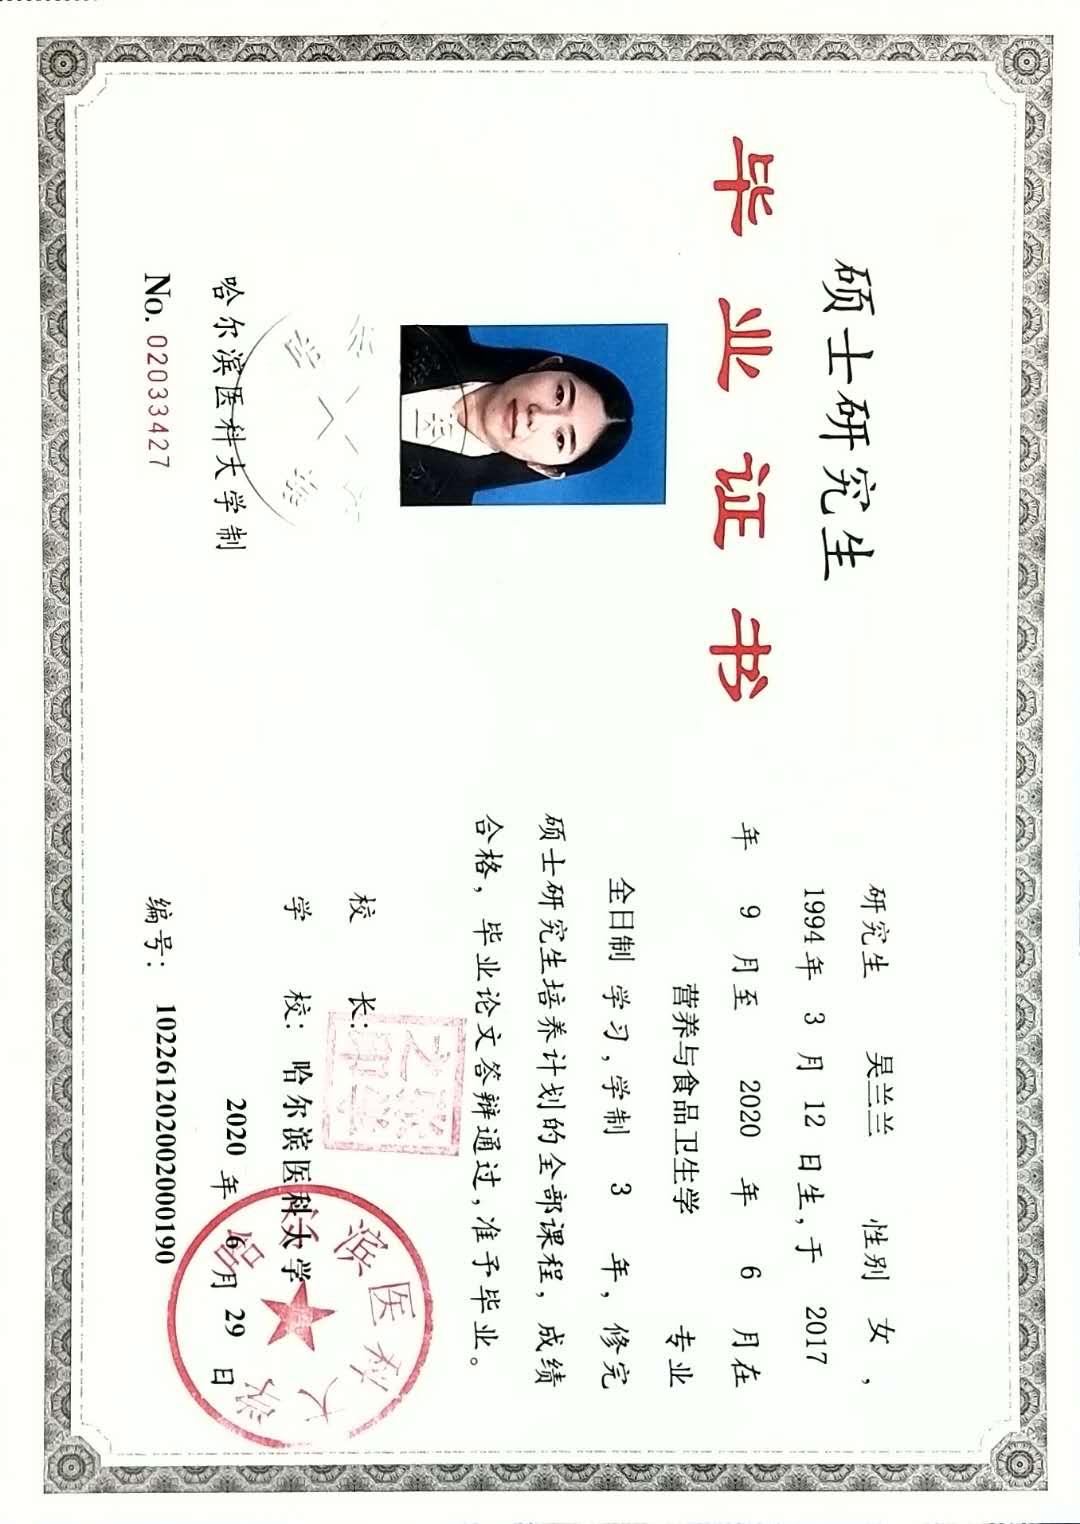 硕士研究生
毕业证书
哈尔滨医科大学制
No. 02033427
研究生 吴兰兰 性别 女，
1994年 3 月 12 日生，于 2017
年 9 月至 2020 年 6 月在
营养与食品卫生学 专业
全日制 学习，学制 3 年，修完
硕士研究生培养计划的全部课程，成绩
合格，毕业论文答辩通过，准予毕业。
校 长：
学 校： 哈尔滨医科大学
2020 年 6 月 29 日
编号： 102261202002000190
哈尔滨医科大学